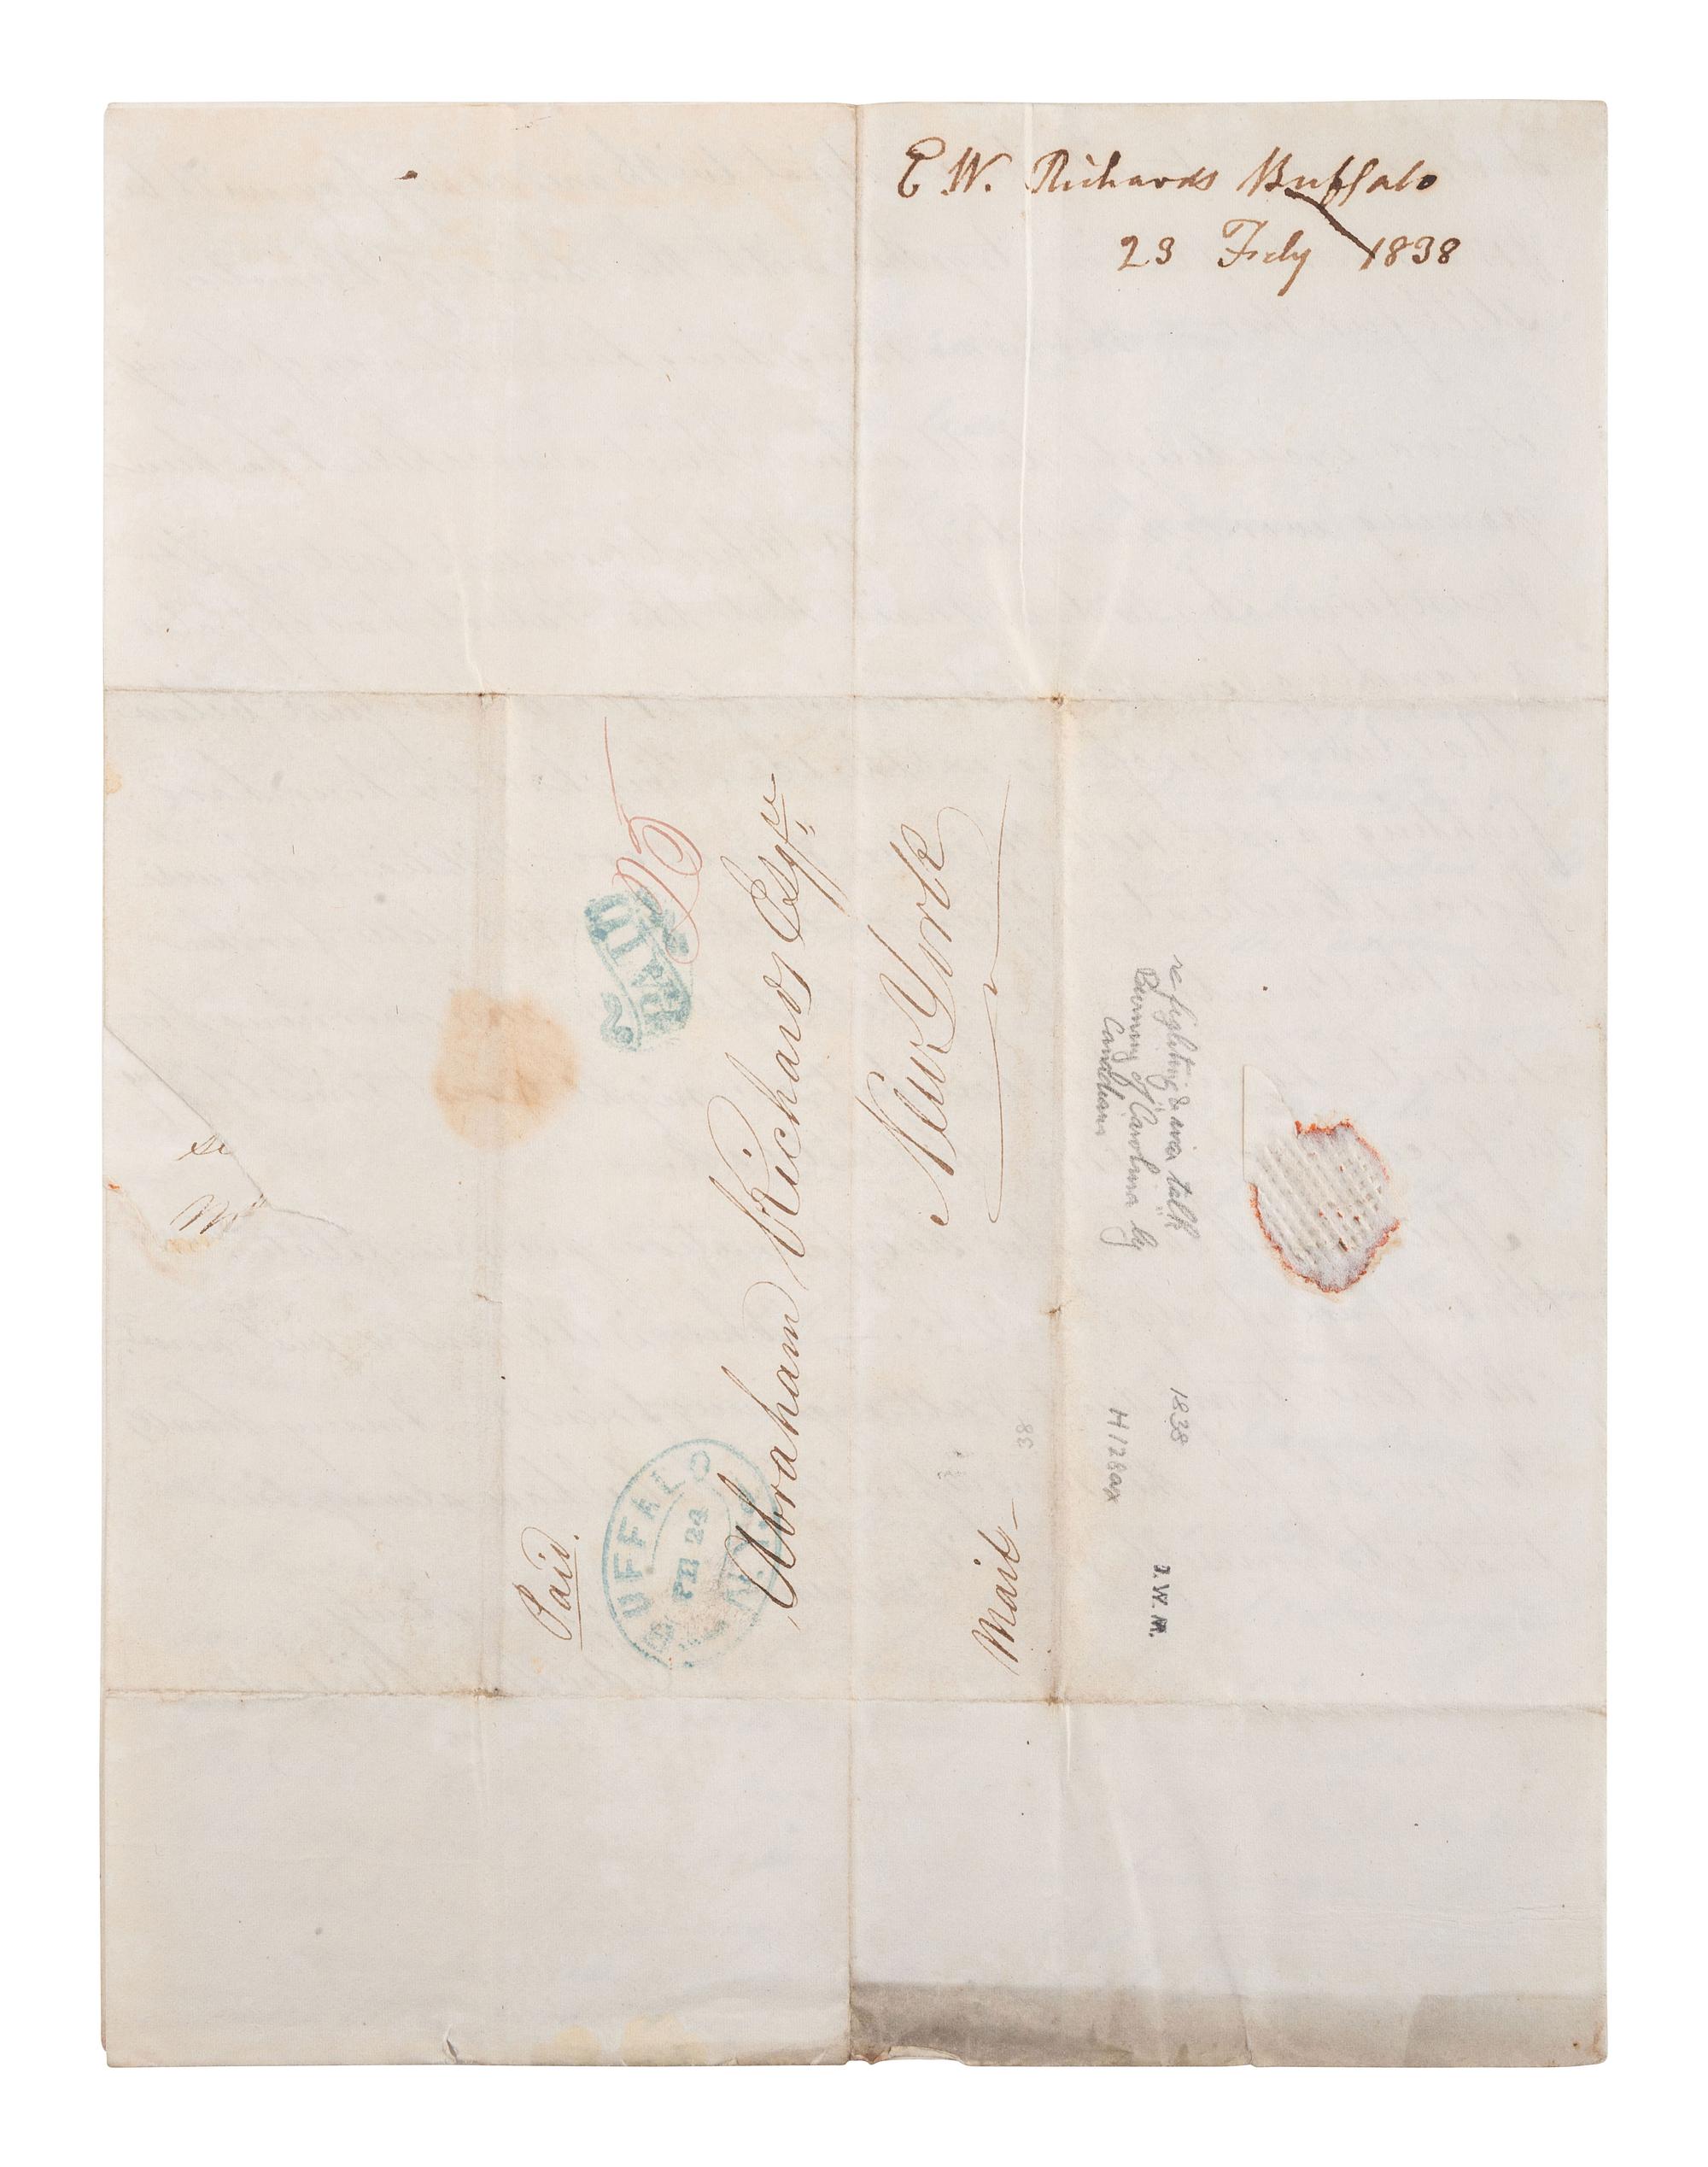 E W. Richards Buffalo
23 Feby 1838
Paid.
PAID
25
BUFFALO
FEB 24
N.Y.
Abraham Richards Esqr.
New York
Mail
38
re fighting & war talk
Burning of "Carolina" by
Canadians
1838
H128ax
J. W. M.